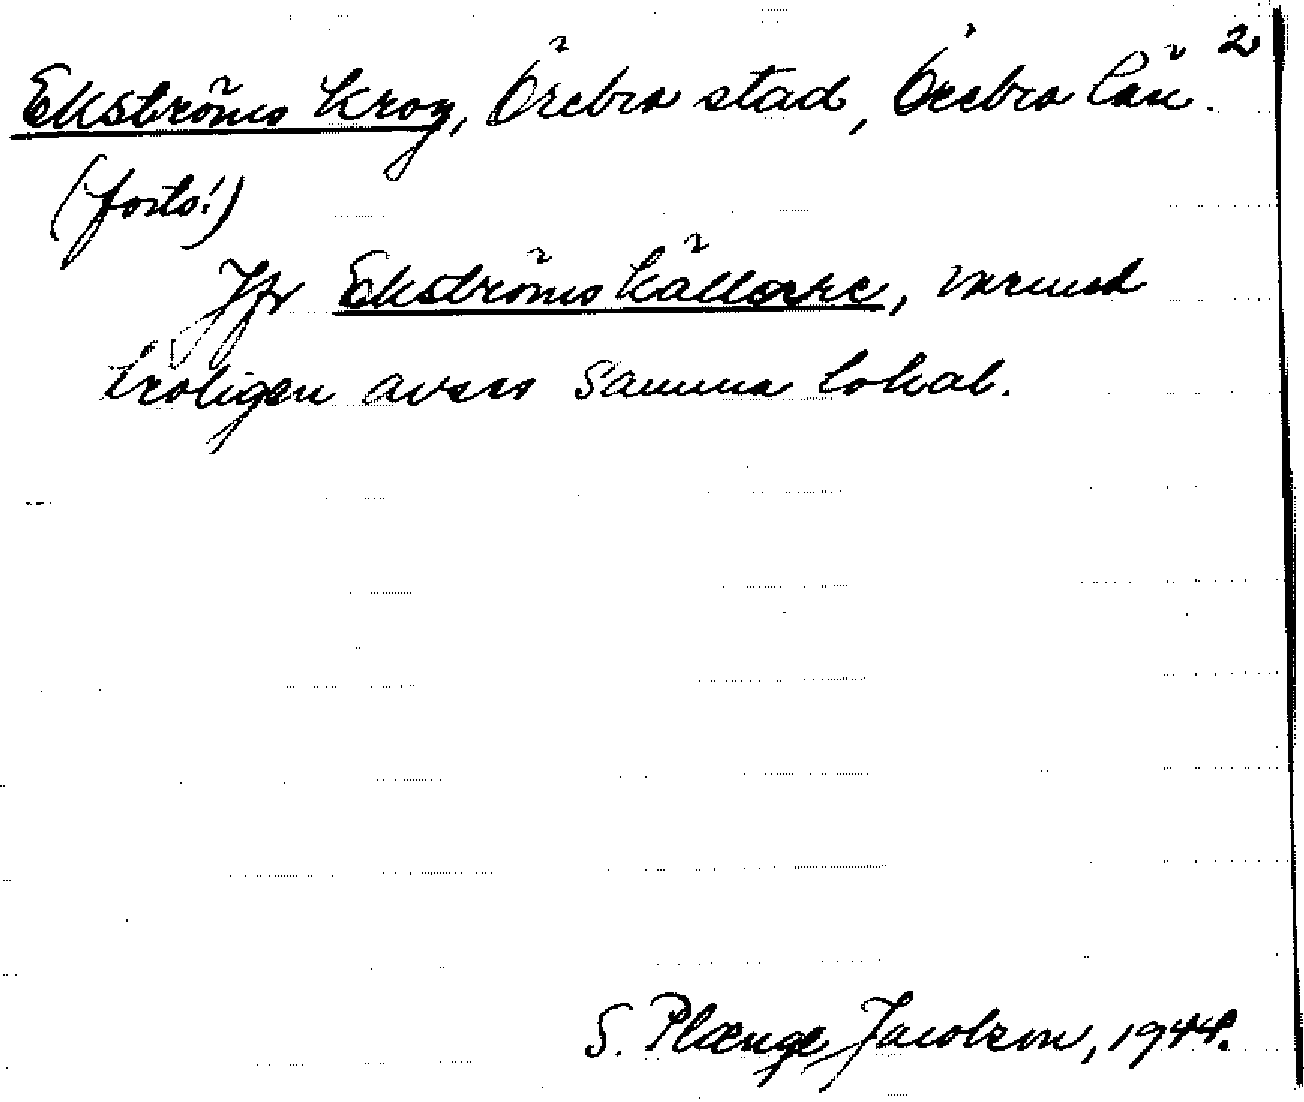 2
Ekströms krog, Örebro stad, Örebro län.
(forts.)
Jfr Ekströms källare, varmed
troligen avses samma lokal.
S. Plænge Jacobson, 1944.